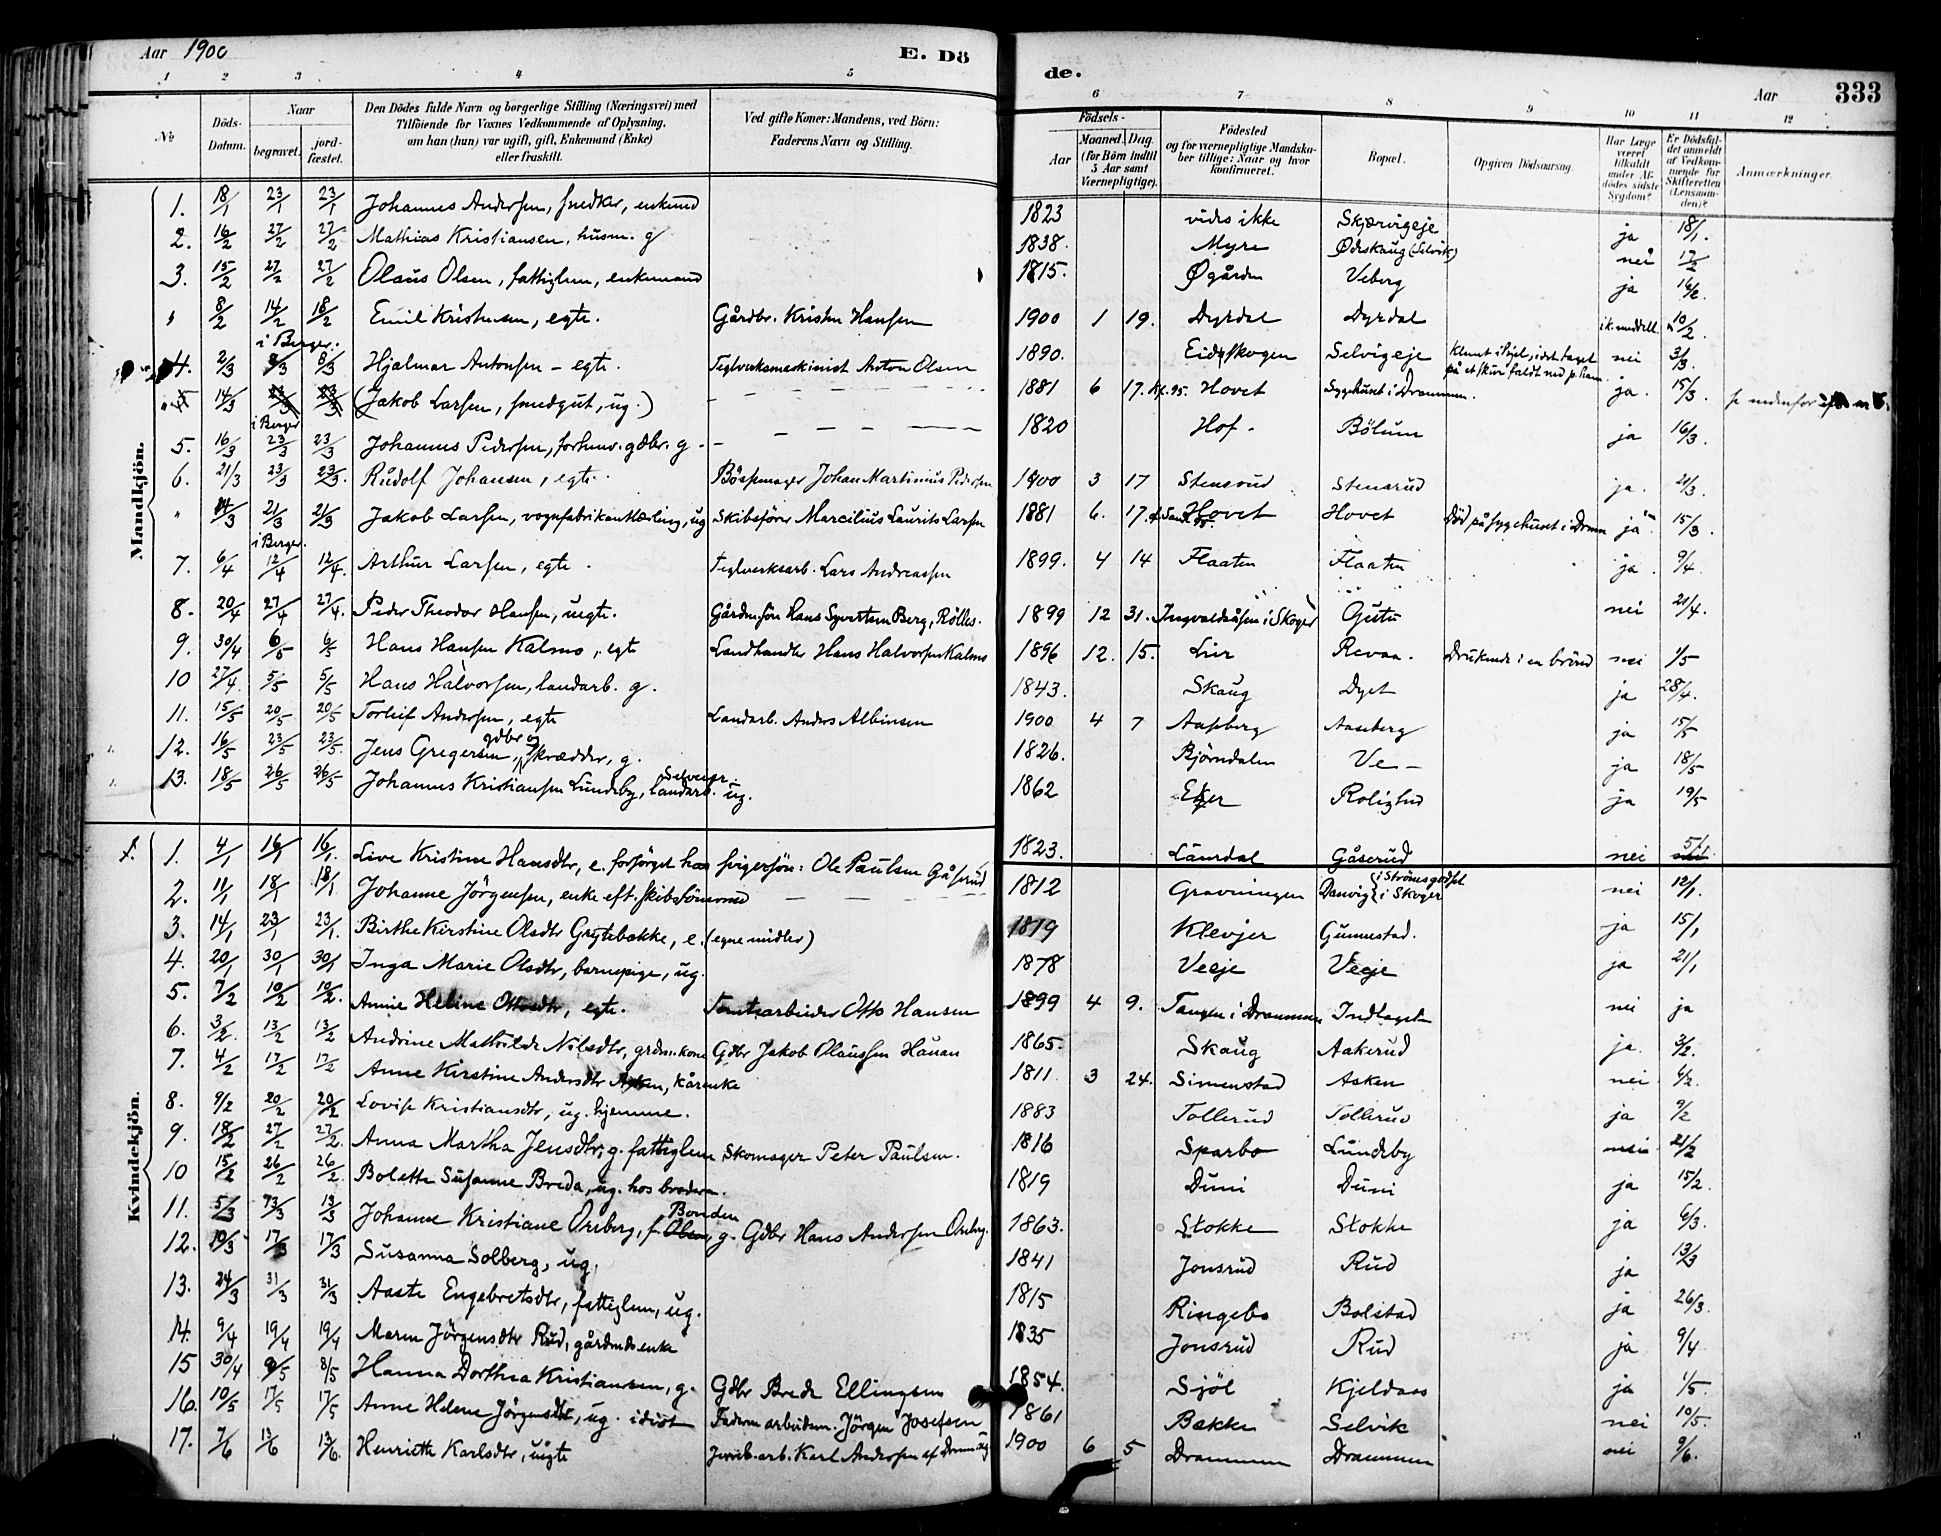 Aar 1900
E. Dö
de.
Aar
333
1 2 3 4 5 6 7 8 9 10 11 12
№
Döds-Datum.
Naar
begravet.
jordfæstet.
Den Dödes fulde Navn og borgerlige Stilling (Næringsvei) med
Tilföiende for Voxnes Vedkommende af Oplysning,
om han (hun) var ugift, gift, Enkemand (Enke)
eller fraskilt.
Ved gifte Koner: Mandens, ved Börn:
Faderens Navn og Stilling.
Födsels-
Aar
Maaned. Dag.
(for Börn indtil
5 Aar samt
Værnepligtige).
Födested
og for værnepligtige Mandskaber tillige: Naar og hvor
konfirmeret.
Bopæl.
Opgiven Dödsaarsag.
Har Læge
været
tilkaldt
under Afdödes sidste
Sygdom?
Er Dödsfaldet anmeldt
af Vedkommende for
Skifteretten
(Lensmanden)?
Anmærkninger.
Mandkjön.
1. 18/1 23/1 23/1 Johannes Andersen, snedker, enkemd 1823 vides ikke Skjærvigeje ja 18/1.
2. 16/2 27/2 27/2 Mathias Kristiansen, husm. g 1838. Myre Ødeskaug (Selvik) nei 17/2
3. 15/2 27/2 27/2 Olaus Olsen, fattiglem, enkemand 1815. Øgården Veberg ja 16/2.
" 8/2 14/2 i Berger. 18/2 Emil Kristensen, egte. Gårdbr. Kristen Hansen 1900 1 19. Dyrdal Dyrdal ik. meddelt. 10/2.
4. 2/3 8/3 8/3 Hjalmar Antonsen - egte. Teglverksmaskinist Anton Olsen 1890. Eidsskogen Selvigeje klemt ihjel, idet taget på et skur faldt ned p. ham. nei 3/3.
14/3 23/3 23/3 (Jakob Larsen, smedgut, ug.) 1881 6 17. Kf. 95. Hovet Sygehuset i Drammen. ja. 15/3. se nedenfor
5. 16/3 23/3 23/3 Johannes Pedersen, forhenv. gdbr. g - 1820 Hof. Bölum ja 16/3.
6. 21/3 23/3 23/3. Rudolf Johansen, egte. Bössemager Johan Martinius Pedersen 1900 3 17 Stensrud Stensrud ja. 21/3.
" 14/3 21/3 i Berger. 21/3 Jakob Larsen, vognfabrikantlærling, ug Skibsförer Marcilius Laurits Larsen 1881 6. 17. Hovet Hovet Död på sygehuset i Dramn ja 15/3.
7. 6/4 12/4 12/4. Arthur Larsen, egte. Teglverksarb. Lars Andreassen 1899. 4 14 Flaaten Flaaten ja. 9/4.
8. 20/4 27/4 27/4. Peder Theodor Hansen, uegte. Gårdm.sön Hans Syvertsen Berg, Rölles. 1899 12 31. Ingvaldsåsen i Skoger Gutu nei 21/4.
9. 30/4 6/5 6/5 Hans Hansen Kalmo, egte Landhandler Hans Halvorsen Kalmo 1896 12. 15. Lier Revaa. Druknede i en brönd nei 1/5
10 27/4. 5/5 5/5 Hans Halvorsen, landarb. g. 1843. Skaug Dyet ja 28/4.
11. 15/5 20/5 20/5 Torleif Andersen, egte Landarb. Anders Albinsen 1900 4 7 Aasberg Aasberg ja 15/5
12. 16/5 23/5 23/5. Jens Gregersen, gdbr og skrædder, g. 1826. Bjørndalen Ve - ja 18/5
13. 18/5 26/5 26/5 Johannes Kristiansen Lundeby, Selveier. landarb. ug. 1862 Eker Rolighed ja 19/5
Kvindekjön.
1. 4/1 16/1 16/1. Live Kristine Hansdtr, e. forsörget hos svigersön: Ole Paulsen Gåserud 1823. Laurdal Gåserud nei 5/1
2. 11/1 18/1 18/1 Johanne Jörgensen, enke eft. skibstömmermd 1812 Gravningen Danvig { i Strömsgodset i Skoger nei 12/1.
3. 14/1 23/1 23/1. Birthe Kirstine Olsdtr Grytebække, e. (egne midler) 1819 Klevjer Gunnestad. ja 15/1
4. 20/1 30/1 30/1 Inga Marie Olsdtr, barnepige, ug. 1878 Veeje Veeje ja 21/1
5. 7/2 10/2 10/2. Annie Heline Ottosdtr, egte. Tomtearbeider Otto Hansen 1899 4 9. Tangen i Drammen Indlaget nei ja
6. 3/2. 13/2 13/2 Andrine Mathilde Nilsdtr, grdm.kone Gdbr Jakob Olaussen Hauan 1865. Skaug Aakerud ja. 3/2.
7. 4/2 17/2 17/2 Anne Kirstine Andersdtr Asken, kårenke 1811 3 24. Simenstad Asken nei 6/2.
8. 9/2 20/2 20/2 Lovise Kristiansdtr, ug. hjemme. 1883 Tollerud Tollerud ja 9/2
9. 18/2 27/2 27/2. Anna Martha Jensdtr, g. fattiglem Skomager Peter Paulsen. 1816 Sparbo Lundeby nei 21/2
10 15/2 26/2 26/2. Bolette Susanne Breda, ug. hos broderen. 1819 Duni Duni ja 15/2.
11. 5/3 13/3 13/3 Johanne Kristiane Orsberg, f. Bonden g. Gdbr Hans Andersen Orsberg. 1863. Stokke Stokke ja 6/3.
12. 10/3 17/3 17/3 Susanna Solberg, ug. 1841 Jonsrud Rud ja 13/3
13. 24/3 31/3 31/3 Aaste Engebretsdtr, fattiglem, ug. 1815 Ringebo Bolstad ja 26/3.
14. 9/4 19/4 19/4 Maren Jörgensdtr Rud, gårdmdsenke 1835 Jonsrud Rud ja 9/4
15 30/4 8/5 8/5 Hanna Dorthea Kristiansen, g. Gdbr Brede Ellingsen 1854. Sjöl Kjeldaas ja 1/5.
16. 10/5 17/5 17/5 Anne Helene Jörgensdtr, ug. idiot Faderen arbeidsm. Jörgen Josefsen 1861 Bakken Selvik nei 10/5.
17. 7/6 13/6 13/6. Henriette Karlsdtr, uegte Jernb.arb. Karl Andersen af Drammen 1900 6 5 Drammen Drammen nei 9/6.